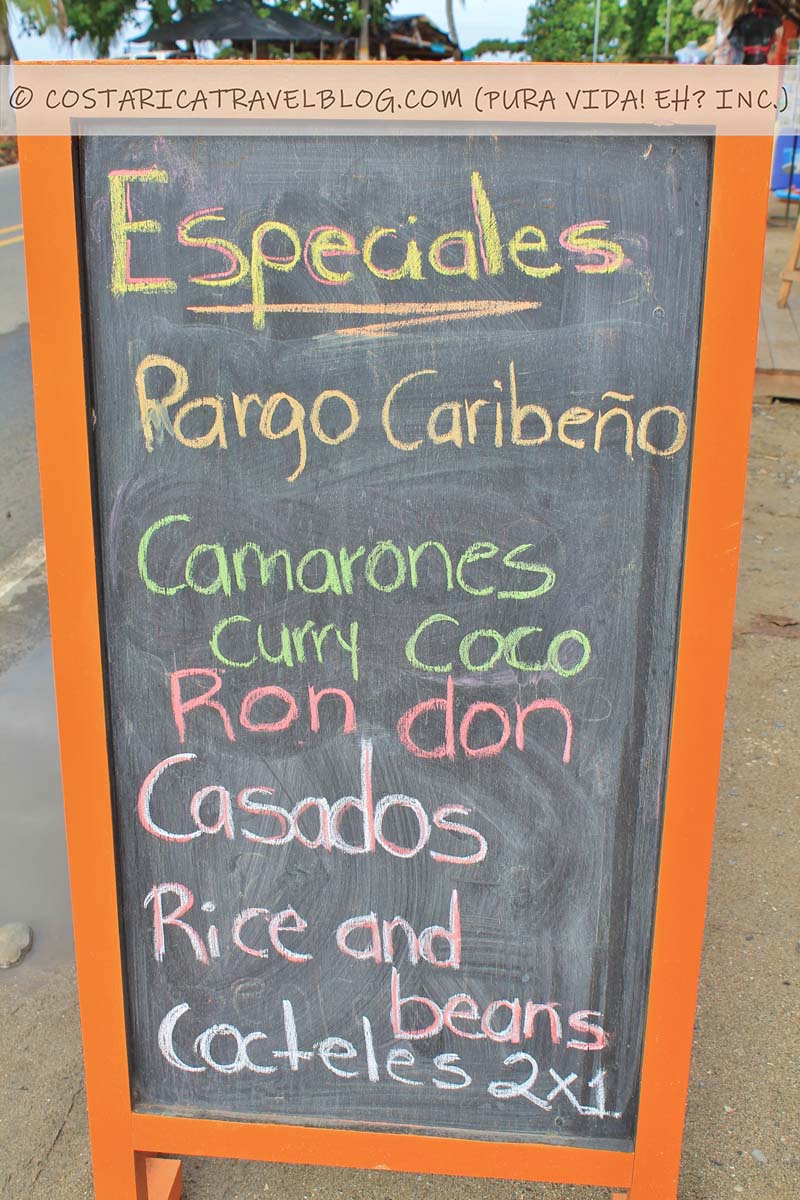 © COSTARICATRAVELBLOG.COM (PURA VIDA! EH? INC.)
Especiales
Pargo Caribeño
Camarones
curry Coco
Ron don
Casados
Rice and
beans
Cocteles 2x1